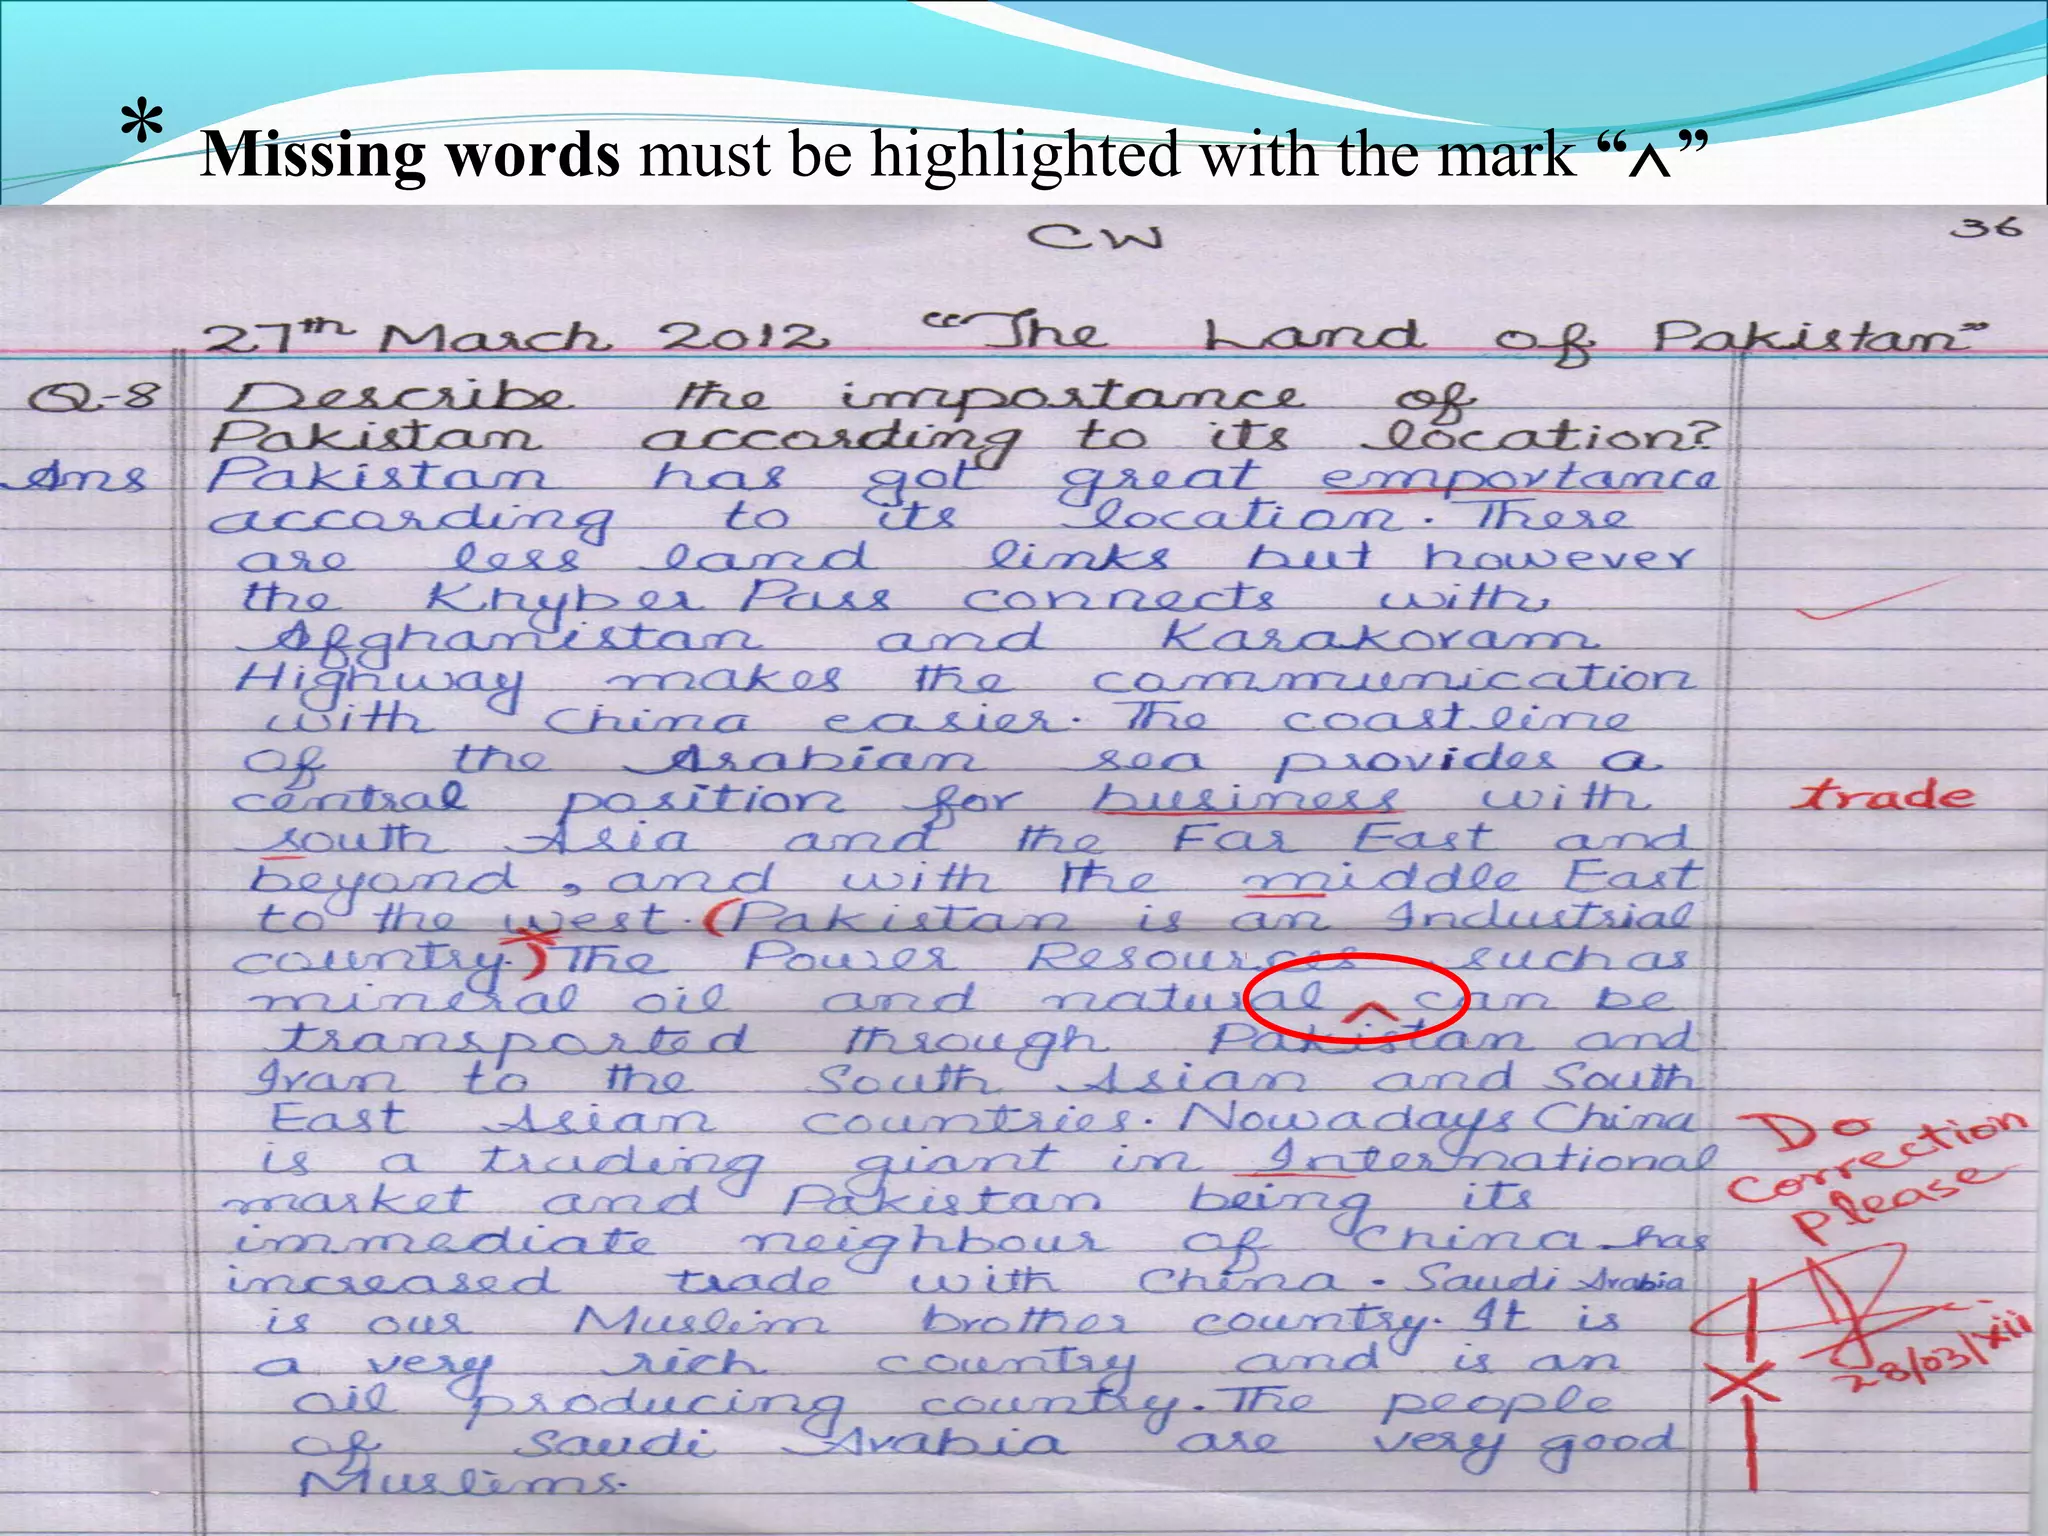 * Missing words must be highlighted with the mark “^”
CW
36
27th March 2012 “The Land of Pakistan”
Q-8 Describe the importance of
Pakistan according to its location?
Ans Pakistan has got great emportance
according to its location. There
are less land links but however
the Khyber Pass connects with
Afghanistan and Karakoram
Highway makes the communication
with China easier. The coastline
of the Arabian sea provides a
central position for business with trade
south Asia and the Far East and
beyond, and with the middle East
to the west. (Pakistan is an Industrial
country.) The Power Resources such as
mineral oil and natural ^ can be
transported through Pakistan and
Iran to the South Asian and South
East Asian countries. Nowadays China
is a trading giant in International
market and Pakistan being its
immediate neighbour of China has
increased trade with China. Saudi Arabia
is our Muslim brother country. It is
a very rich country and is an
oil producing country. The people
of Saudi Arabia are very good
Muslims.
Do
correction
Please
28/03/xii